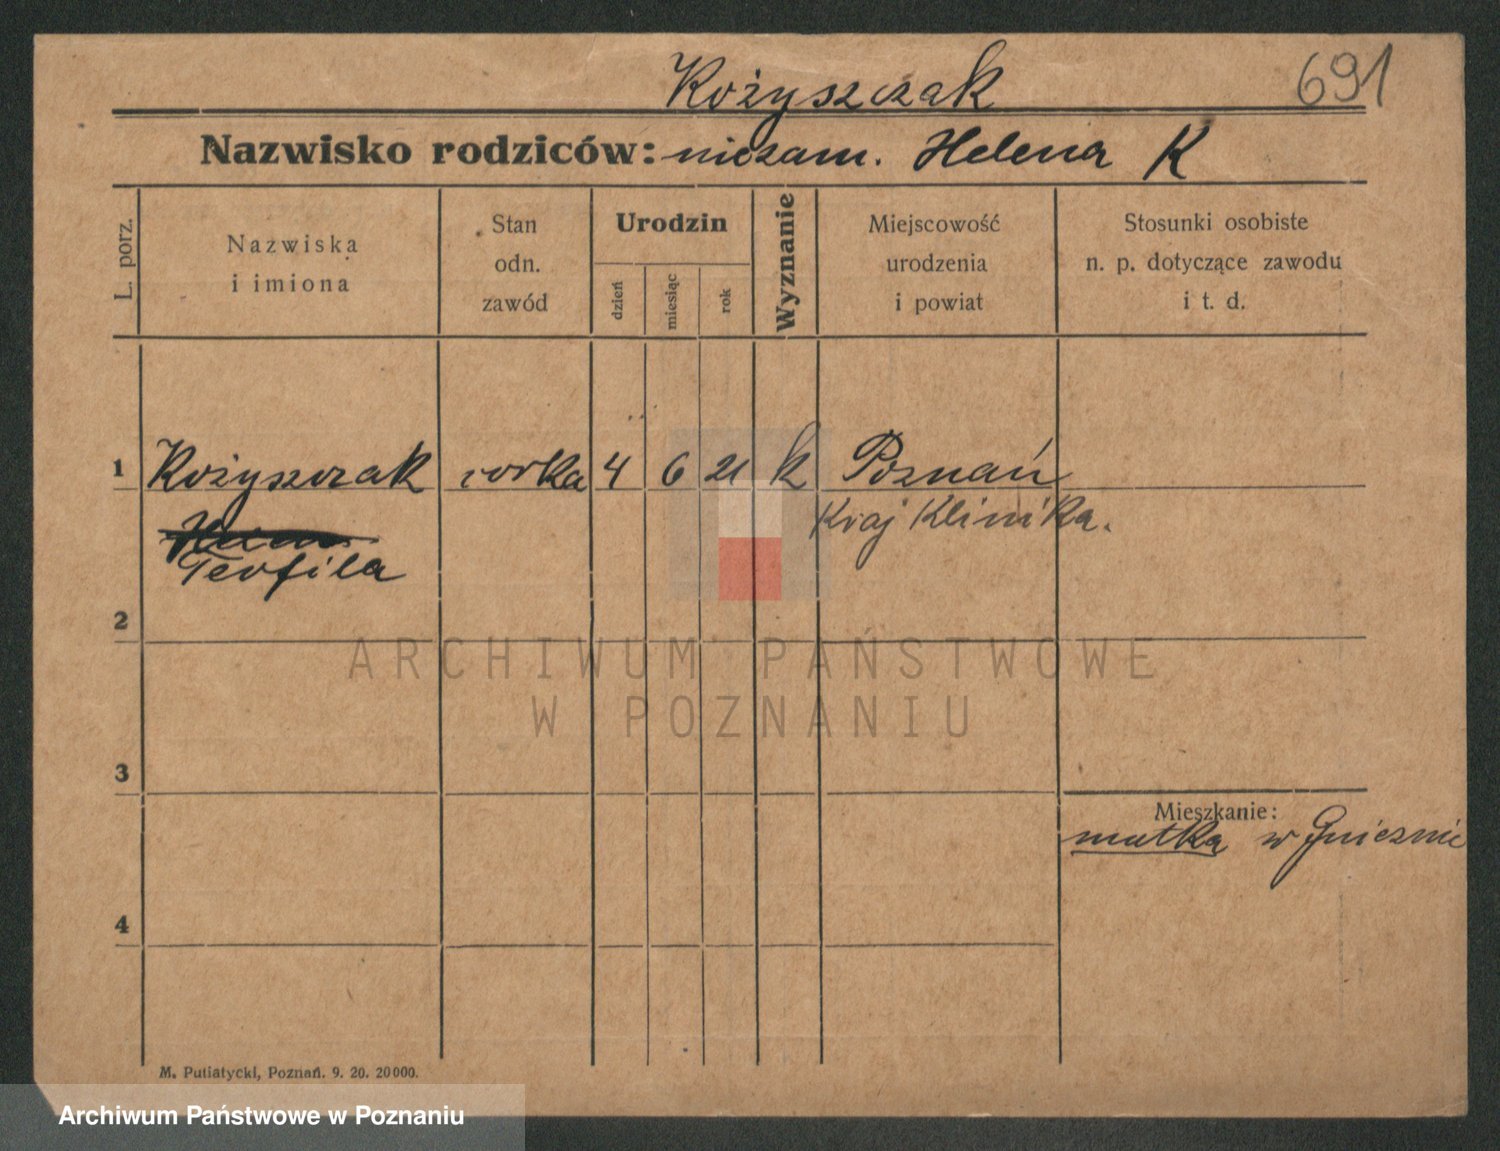 Kożyszczak 691
Nazwisko rodziców: niezam. Helena K
L. porz.
Nazwiska
i imiona
Stan
odn.
zawód
Urodzin
dzień
miesiąc
rok
Wyznanie
Miejscowość
urodzenia
i powiat
Stosunki osobiste
n. p. dotyczące zawodu
i t. d.
1 Kożyszczak corka 4 6 21 k Poznań
Kraj Klinika.
Teofila
2
3
Mieszkanie:
matka w Gnieznie
4
M. Putiatycki, Poznań. 9. 20. 20000.
ARCHIWUM PAŃSTWOWE
W POZNANIU
Archiwum Państwowe w Poznaniu